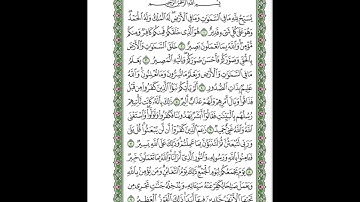 بِسْمِ اللَّهِ الرَّحْمَٰنِ الرَّحِيمِ
يُسَبِّحُ لِلَّهِ مَا فِي السَّمَٰوَٰتِ وَمَا فِي الْأَرْضِ لَهُ الْمُلْكُ وَلَهُ الْحَمْدُ
وَهُوَ عَلَىٰ كُلِّ شَيْءٍ قَدِيرٌ ١ هُوَ الَّذِي خَلَقَكُمْ فَمِنكُمْ كَافِرٌ وَمِنكُم
مُّؤْمِنٌ وَاللَّهُ بِمَا تَعْمَلُونَ بَصِيرٌ ٢ خَلَقَ السَّمَٰوَٰتِ وَالْأَرْضَ
بِالْحَقِّ وَصَوَّرَكُمْ فَأَحْسَنَ صُوَرَكُمْ وَإِلَيْهِ الْمَصِيرُ ٣ يَعْلَمُ
مَا فِي السَّمَٰوَٰتِ وَالْأَرْضِ وَيَعْلَمُ مَا تُسِرُّونَ وَمَا تُعْلِنُونَ وَاللَّهُ
عَلِيمٌ بِذَاتِ الصُّدُورِ ٤ أَلَمْ يَأْتِكُمْ نَبَؤُا الَّذِينَ كَفَرُوا مِن قَبْلُ
فَذَاقُوا وَبَالَ أَمْرِهِمْ وَلَهُمْ عَذَابٌ أَلِيمٌ ٥ ذَٰلِكَ بِأَنَّهُ كَانَت تَّأْتِيهِمْ
رُسُلُهُم بِالْبَيِّنَٰتِ فَقَالُوا أَبَشَرٌ يَهْدُونَنَا فَكَفَرُوا وَتَوَلَّوا وَّاسْتَغْنَى
اللَّهُ وَاللَّهُ غَنِيٌّ حَمِيدٌ ٦ زَعَمَ الَّذِينَ كَفَرُوا أَن لَّن يُبْعَثُوا قُلْ بَلَىٰ
وَرَبِّي لَتُبْعَثُنَّ ثُمَّ لَتُنَبَّؤُنَّ بِمَا عَمِلْتُمْ وَذَٰلِكَ عَلَى اللَّهِ يَسِيرٌ ٧
فَـَٔامِنُوا بِاللَّهِ وَرَسُولِهِ وَالنُّورِ الَّذِي أَنزَلْنَا وَاللَّهُ بِمَا تَعْمَلُونَ خَبِيرٌ
٨ يَوْمَ يَجْمَعُكُمْ لِيَوْمِ الْجَمْعِ ذَٰلِكَ يَوْمُ التَّغَابُنِ وَمَن يُؤْمِن بِاللَّهِ
وَيَعْمَلْ صَٰلِحًا يُكَفِّرْ عَنْهُ سَيِّـَٔاتِهِ وَيُدْخِلْهُ جَنَّٰتٍ تَجْرِي مِن
تَحْتِهَا الْأَنْهَٰرُ خَٰلِدِينَ فِيهَا أَبَدًا ذَٰلِكَ الْفَوْزُ الْعَظِيمُ ٩